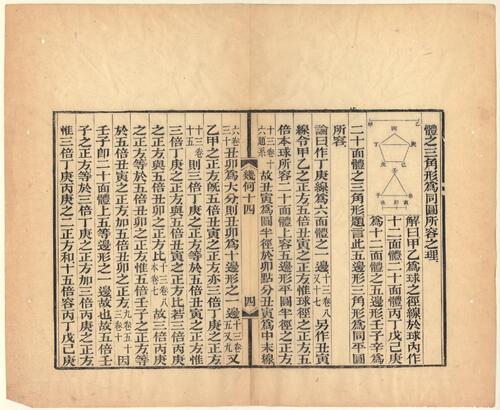 體之三角形爲同圜所容之理
解曰甲乙爲球之徑線於球內作
十二面體二十面體丙丁戊己庚
爲十二面體之五邊形壬子辛爲
二十面體之三角形題言此五邊形三角形爲同平圜
所容
論曰作丁庚線爲六面體之一邊十三卷八又十七另作丑寅
線令甲乙之正方爲五倍丑寅之正方球徑之正方五
倍本球所容二十面體上容五邊形平圜半徑之正方
十三卷十六題系故丑寅爲圜半徑於卯點分丑寅爲中末線
幾何十四
四
六卷三十丑卯爲大分則丑卯爲十邊形之一邊十三卷五又九又
甲乙之正方旣五倍丑寅之正方亦三倍丁庚之正方
十三卷十五則三倍丁庚之正方等於五倍丑寅之正方惟
三倍丁庚之正方與五倍丑寅之正方比若三倍丙庚
之正方與五倍丑卯之正方比故三倍丙庚
之正方等於五倍丑卯之正方惟五倍壬子之正方等
於五倍丑寅之正方加五倍丑卯之正方因
壬子卽二十面體上五等邊形之一邊故也故五倍壬
子之正方等於三倍丁庚之正方加三倍丙庚之正方
惟三倍丁庚丙庚之二正方和十五倍容丙丁戊己庚